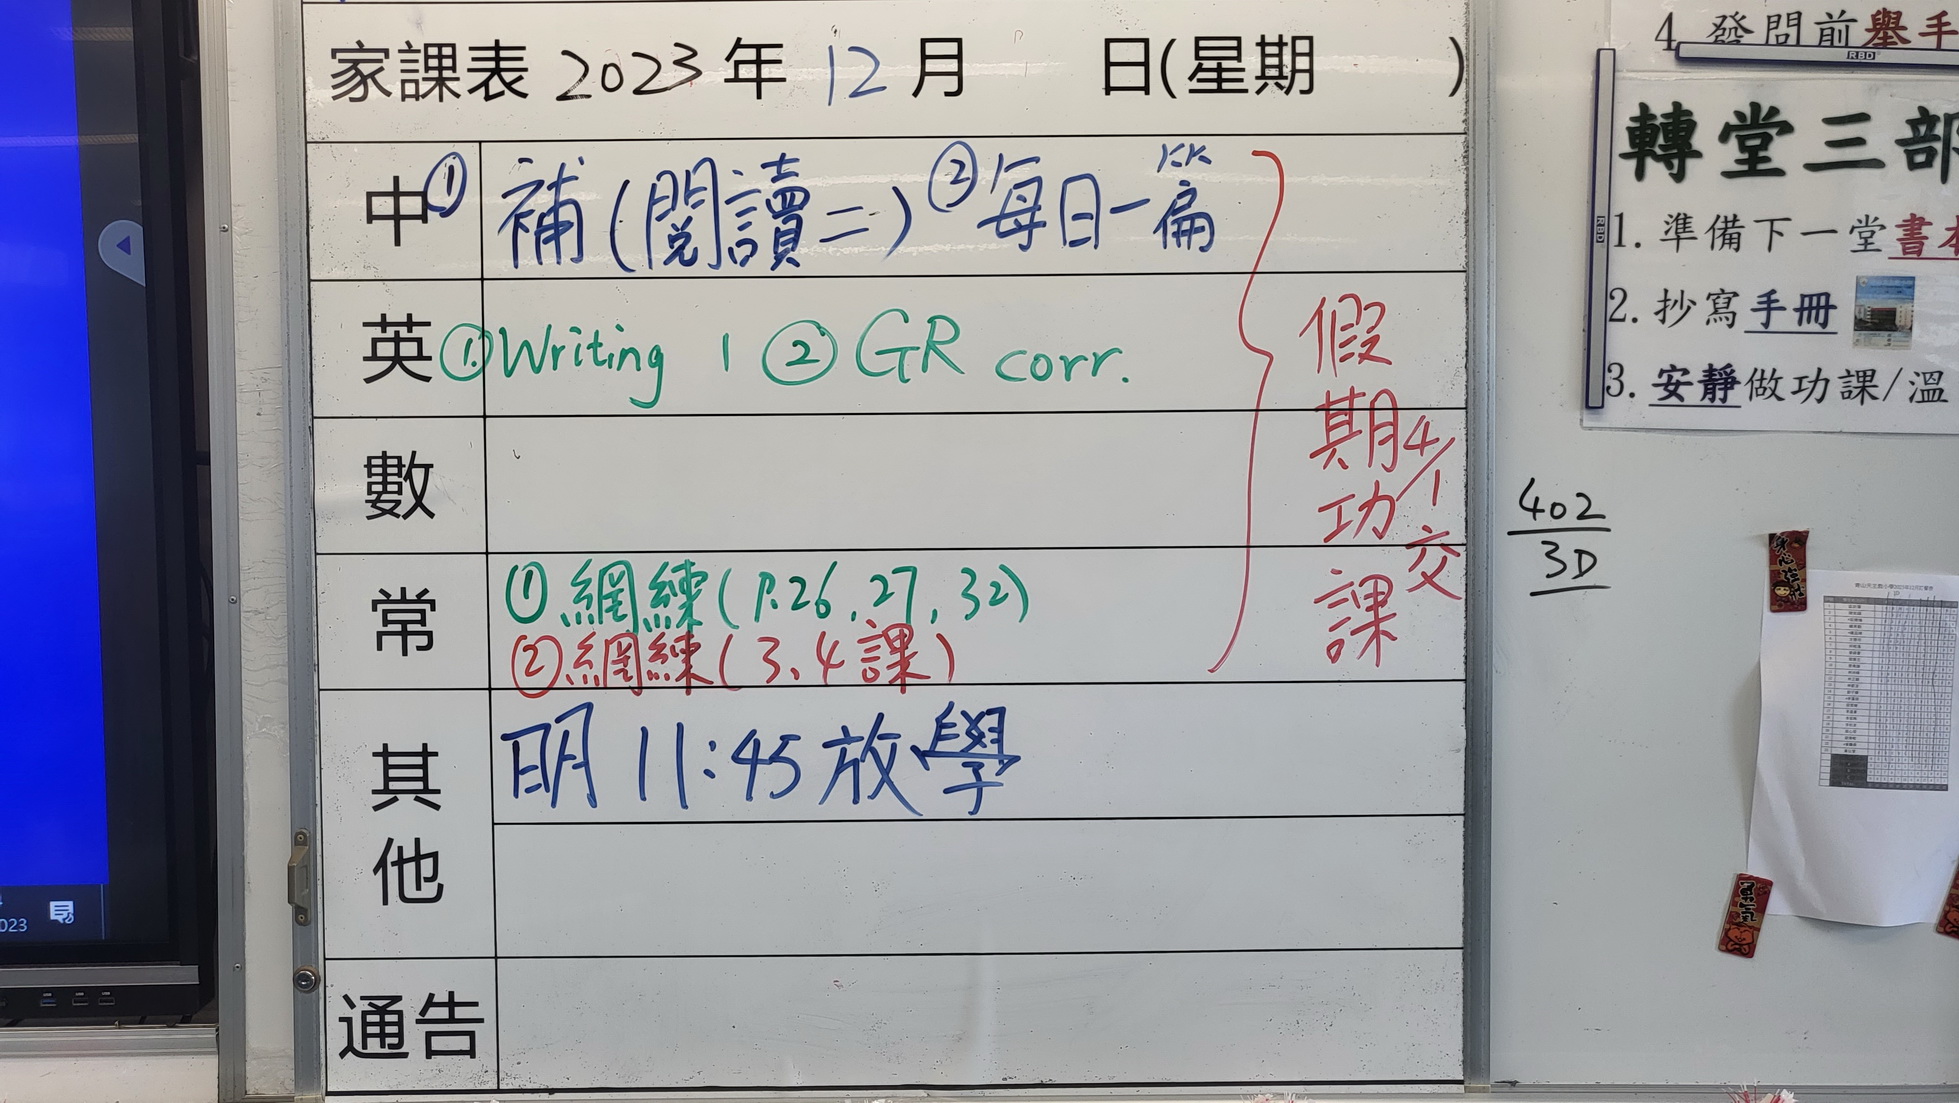 家課表 2023 年 12 月 日(星期 )
中 ① 補(閱讀二) ② 每日一篇
英 ① Writing 1 ② GR corr.
數
常 ① 網練(P.26, 27, 32)
② 網練(3、4課)
假期功課
4/1交
其他 明 11:45 放學
通告
4. 發問前舉手
RBD
轉堂三部
RBD
1. 準備下一堂書本
2. 抄寫手冊
3. 安靜做功課/溫
402
3D
023